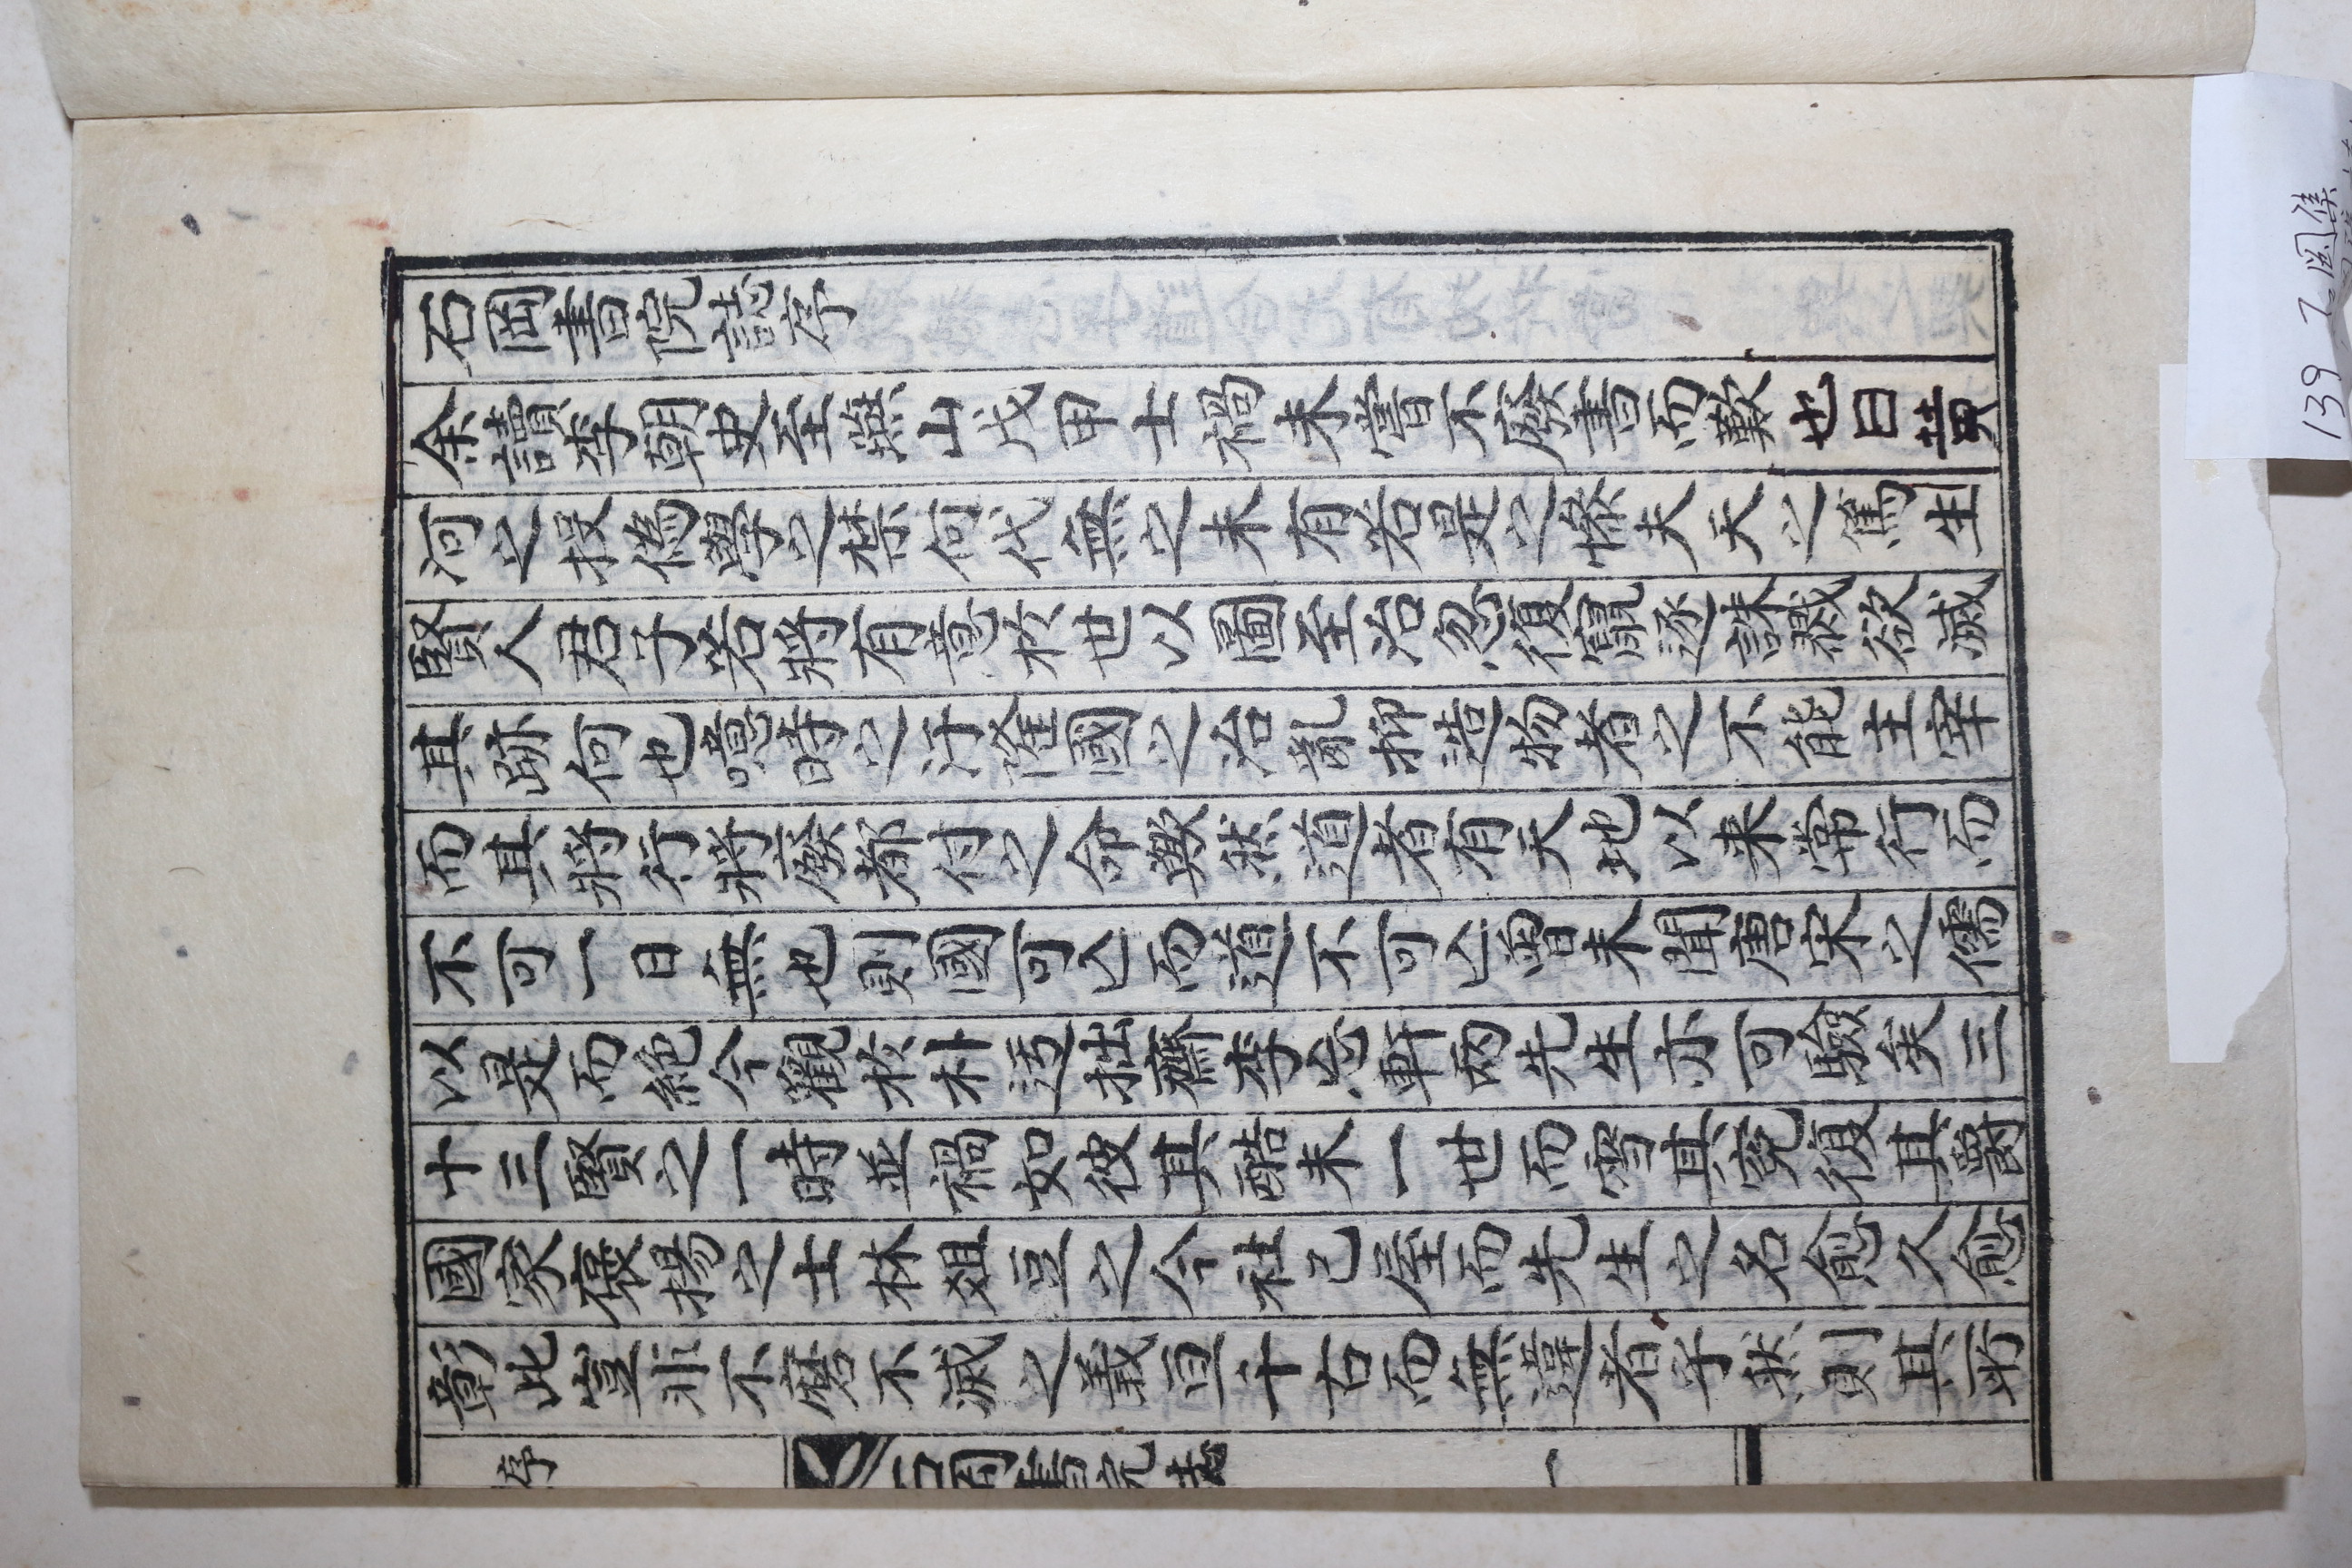 石岡書院誌序
余讀李朝史至燕山戊甲士禍未嘗不廢書而歎也曰黄
河之投僞學之禁何代無之未有若是之慘夫天之篤生
賢人君子若將有意於世以圖至治忽復竄逐誅戮欲滅
其跡何也噫時之汙隆國之治亂抑造物者之不能主宰
而其將行將廢都付之命歟然道者有天地以来常行而
不可一日無也則國可亾而道不可亾曾未聞唐宋之儒
以是而絶今觀於朴迃拙齋李忘軒兩先生亦可驗矣三
十三賢之一時並禍如彼其酷未一世而雪其寃復其爵
國家褒揚之士林俎豆之今社已屋而先生之名愈久愈
彰此豈非不磨不滅之義亘千古而無違者乎然則其所
序
石岡書院誌
一
139 石岡集